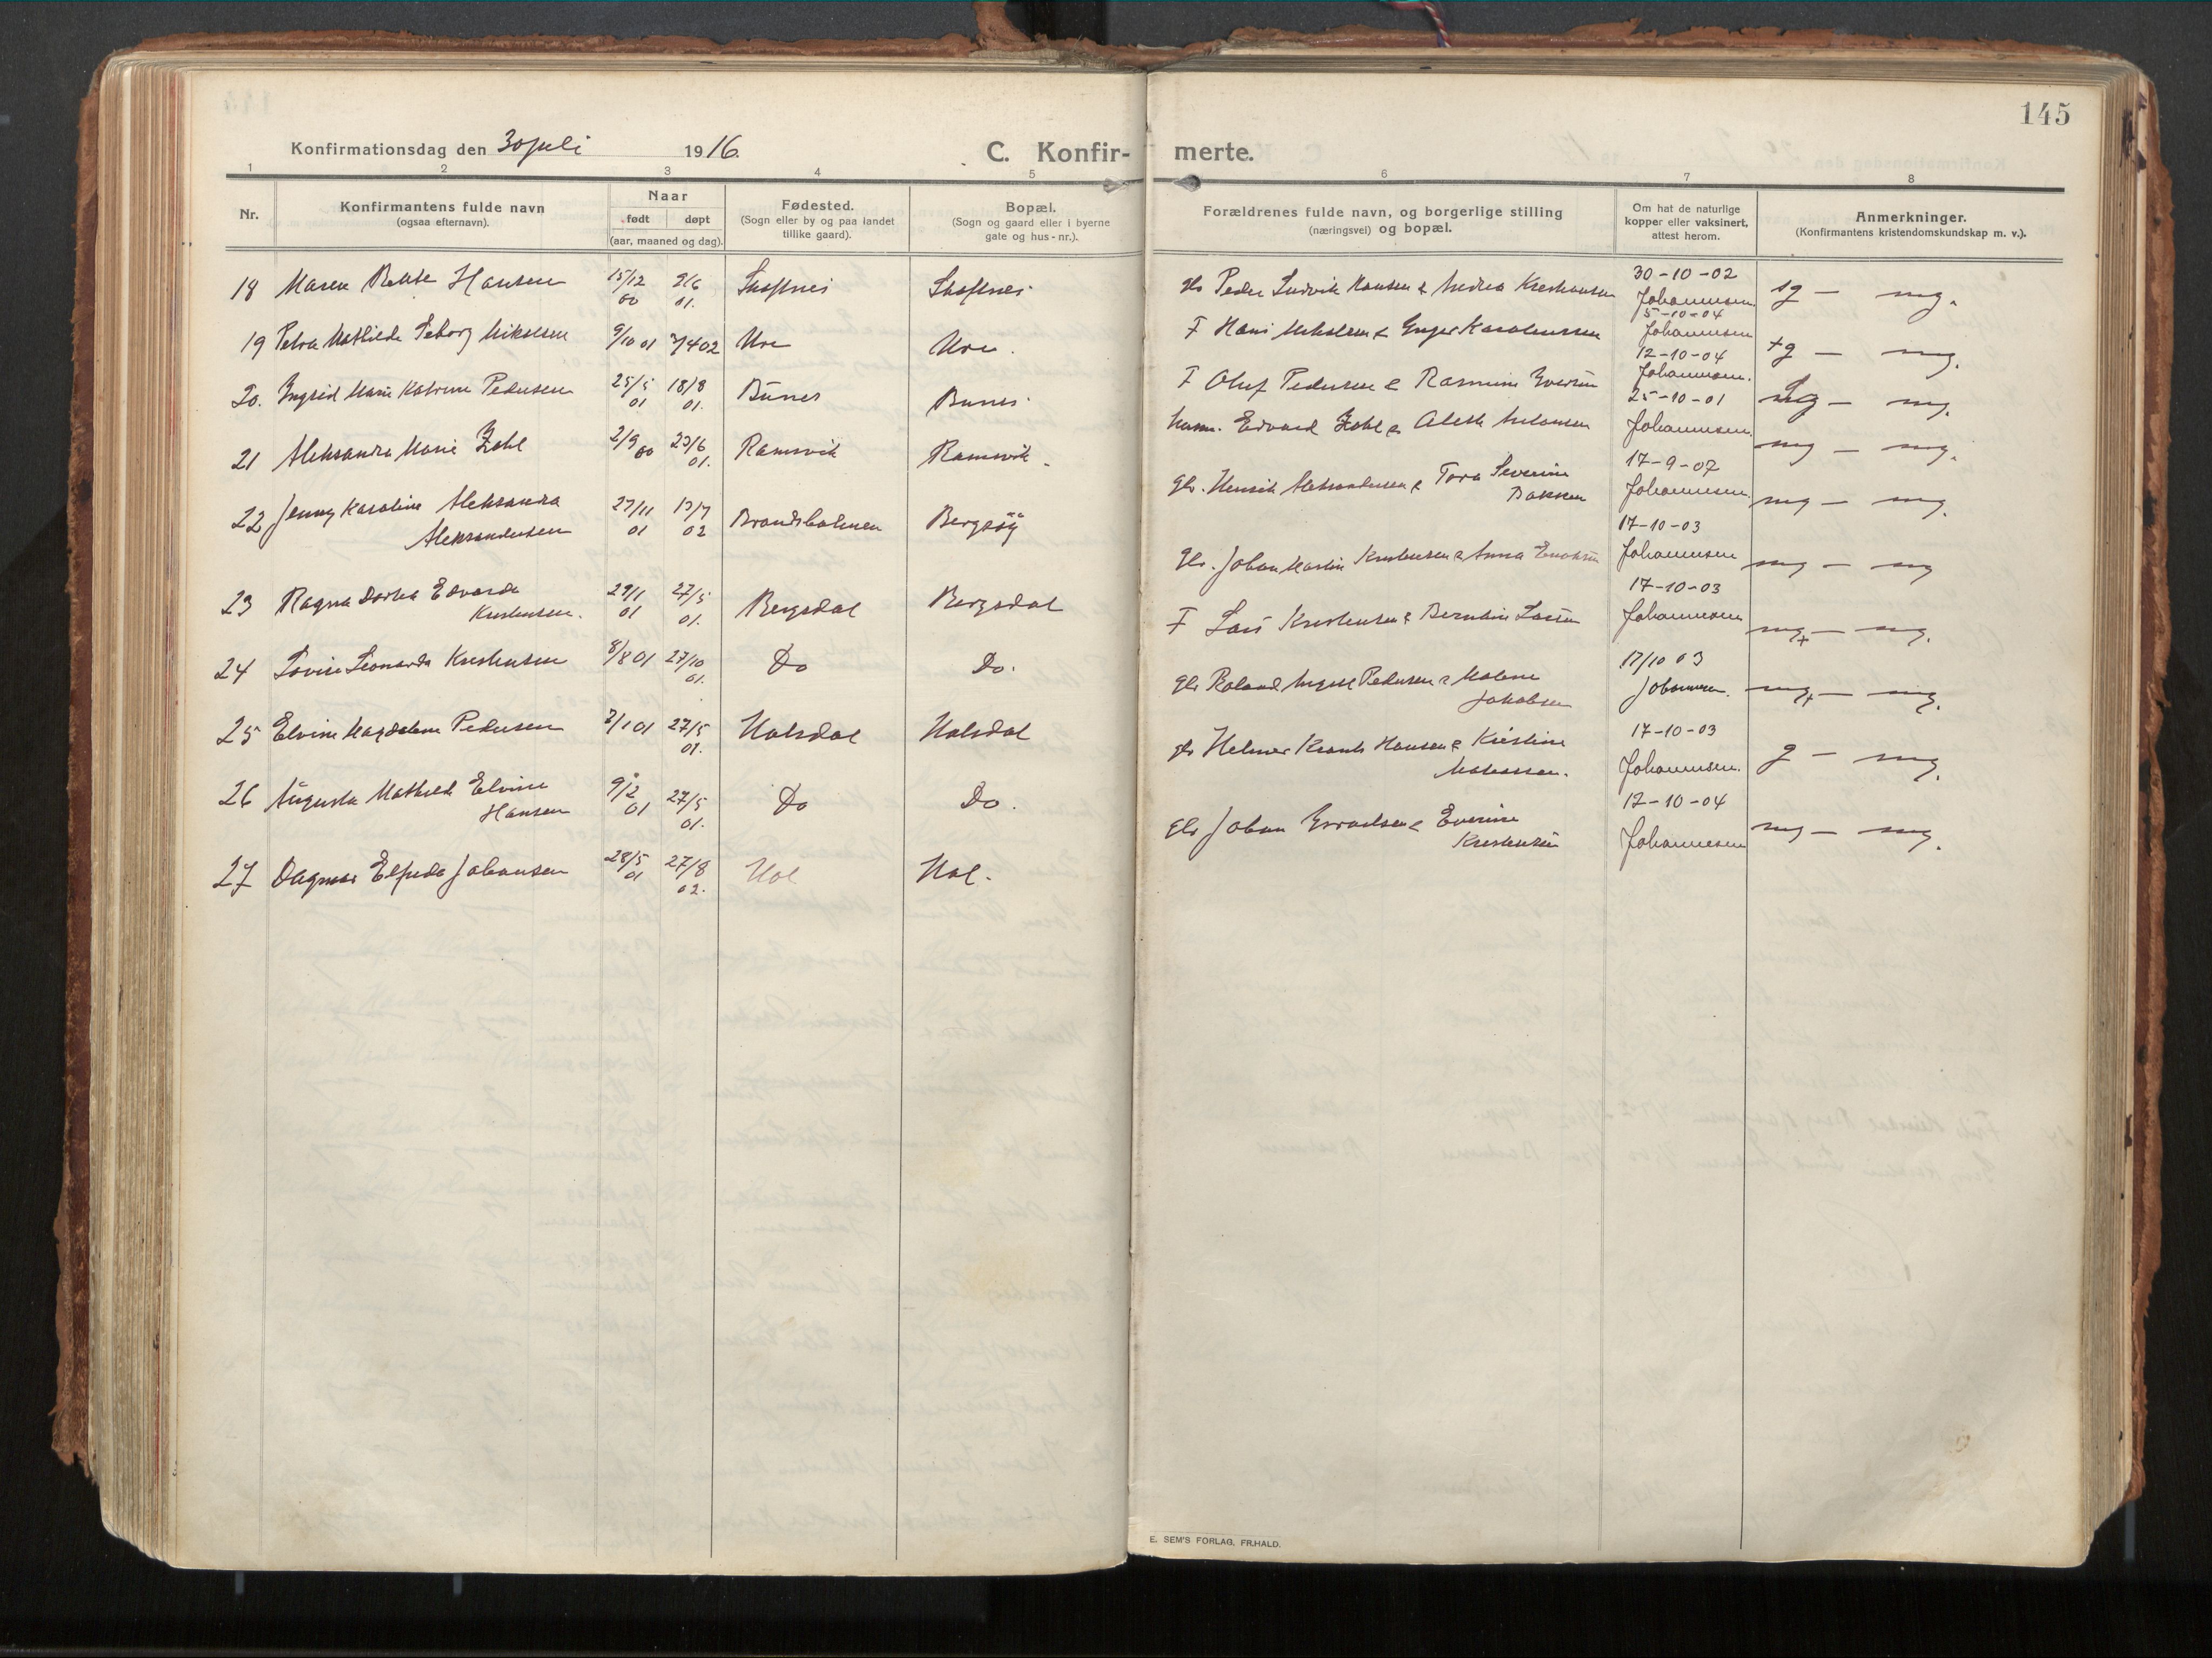 145
Konfirmationsdag den 30 juli 1916.
C. Konfir- merte.
1 2 3 4 5 6 7 8
Nr.
Konfirmantens fulde navn
(ogsaa efternavn).
Naar
født døpt
(aar, maaned og dag).
Fødested.
(Sogn eller by og paa landet
tillike gaard).
Bopæl.
(Sogn og gaard eller i byerne
gate og hus-nr.).
Forældrenes fulde navn, og borgerlige stilling
(næringsvei) og bopæl.
Om hat de naturlige
kopper eller vaksinert,
attest herom.
Anmerkninger.
(Konfirmantens kristendomskundskap m. v.).
18 Maren Hansen 15/12 00 9/6 01.
gbr Peder Ludvik Hansen & Andrea 30-10-02 Johannessen
19 Petra Mathilde Mikelsen 9/10 01 7/4 02 Ure Ure.
F Hans Mikelsen & Inger 5-10-04 Johannesen +g – mg.
20. Ingrid Marie Katrine Pedersen 25/5 01 18/8 01. Bunes Bunes.
F Oluf Pedersen & Rasmine 12-10-04 Johannesen. mg.
21 Aleksandra Marie Zahl 2/9 00 23/6 01. Ramsvik Ramsvik.
Husm. Edvard Zahl & 25-10-01 Johannesen. mg – mg.
22 Jenny Karoline Aleksandra
Aleksandersen 27/11 01 13/7 02 Brandsholmen Bergsøy
gbr. Henrik Aleksandersen & Tora Severine
17-9-07 Johannesen. mg – mg.
23 Ragna Dortea Edvarda
Kristensen. 29/1 01 27/5 01. Bergsdal Bergsdal
gbr. Johan Martin Kristensen & Anna 17-10-03 Johannesen mg – mg
24 Lovise Leonarda Kristensen 8/8 01 27/10 01. Do Do.
F Lars Kristensen & 17-10-03 Johannesen mg+ – mg.
25 Elvine Magdalene Pedersen 2/1 01 27/5 01. Halsdal Halsdal
gbr Roland Pedersen & Malene
Jakobsen 17/10 03 Johannesen. mg+ – mg.
26 Augusta Mathilde Elvine
Hansen 9/2 01 27/5 01. Do Do.
gbr Helmer Hansen & Kristine
17-10-03 Johannesen. g – mg.
27 Dagmar Elfrida Johansen 28/5 01 27/8 02. Hol Hol.
gbr Johan & Everine
Kristensen 12-10-04 Johannesen mg – mg.
E. SEM'S FORLAG, FR.HALD.